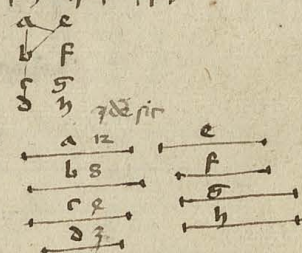 a e
b f
c g
d h
a 12
b 8
c
d
e
f
g
h